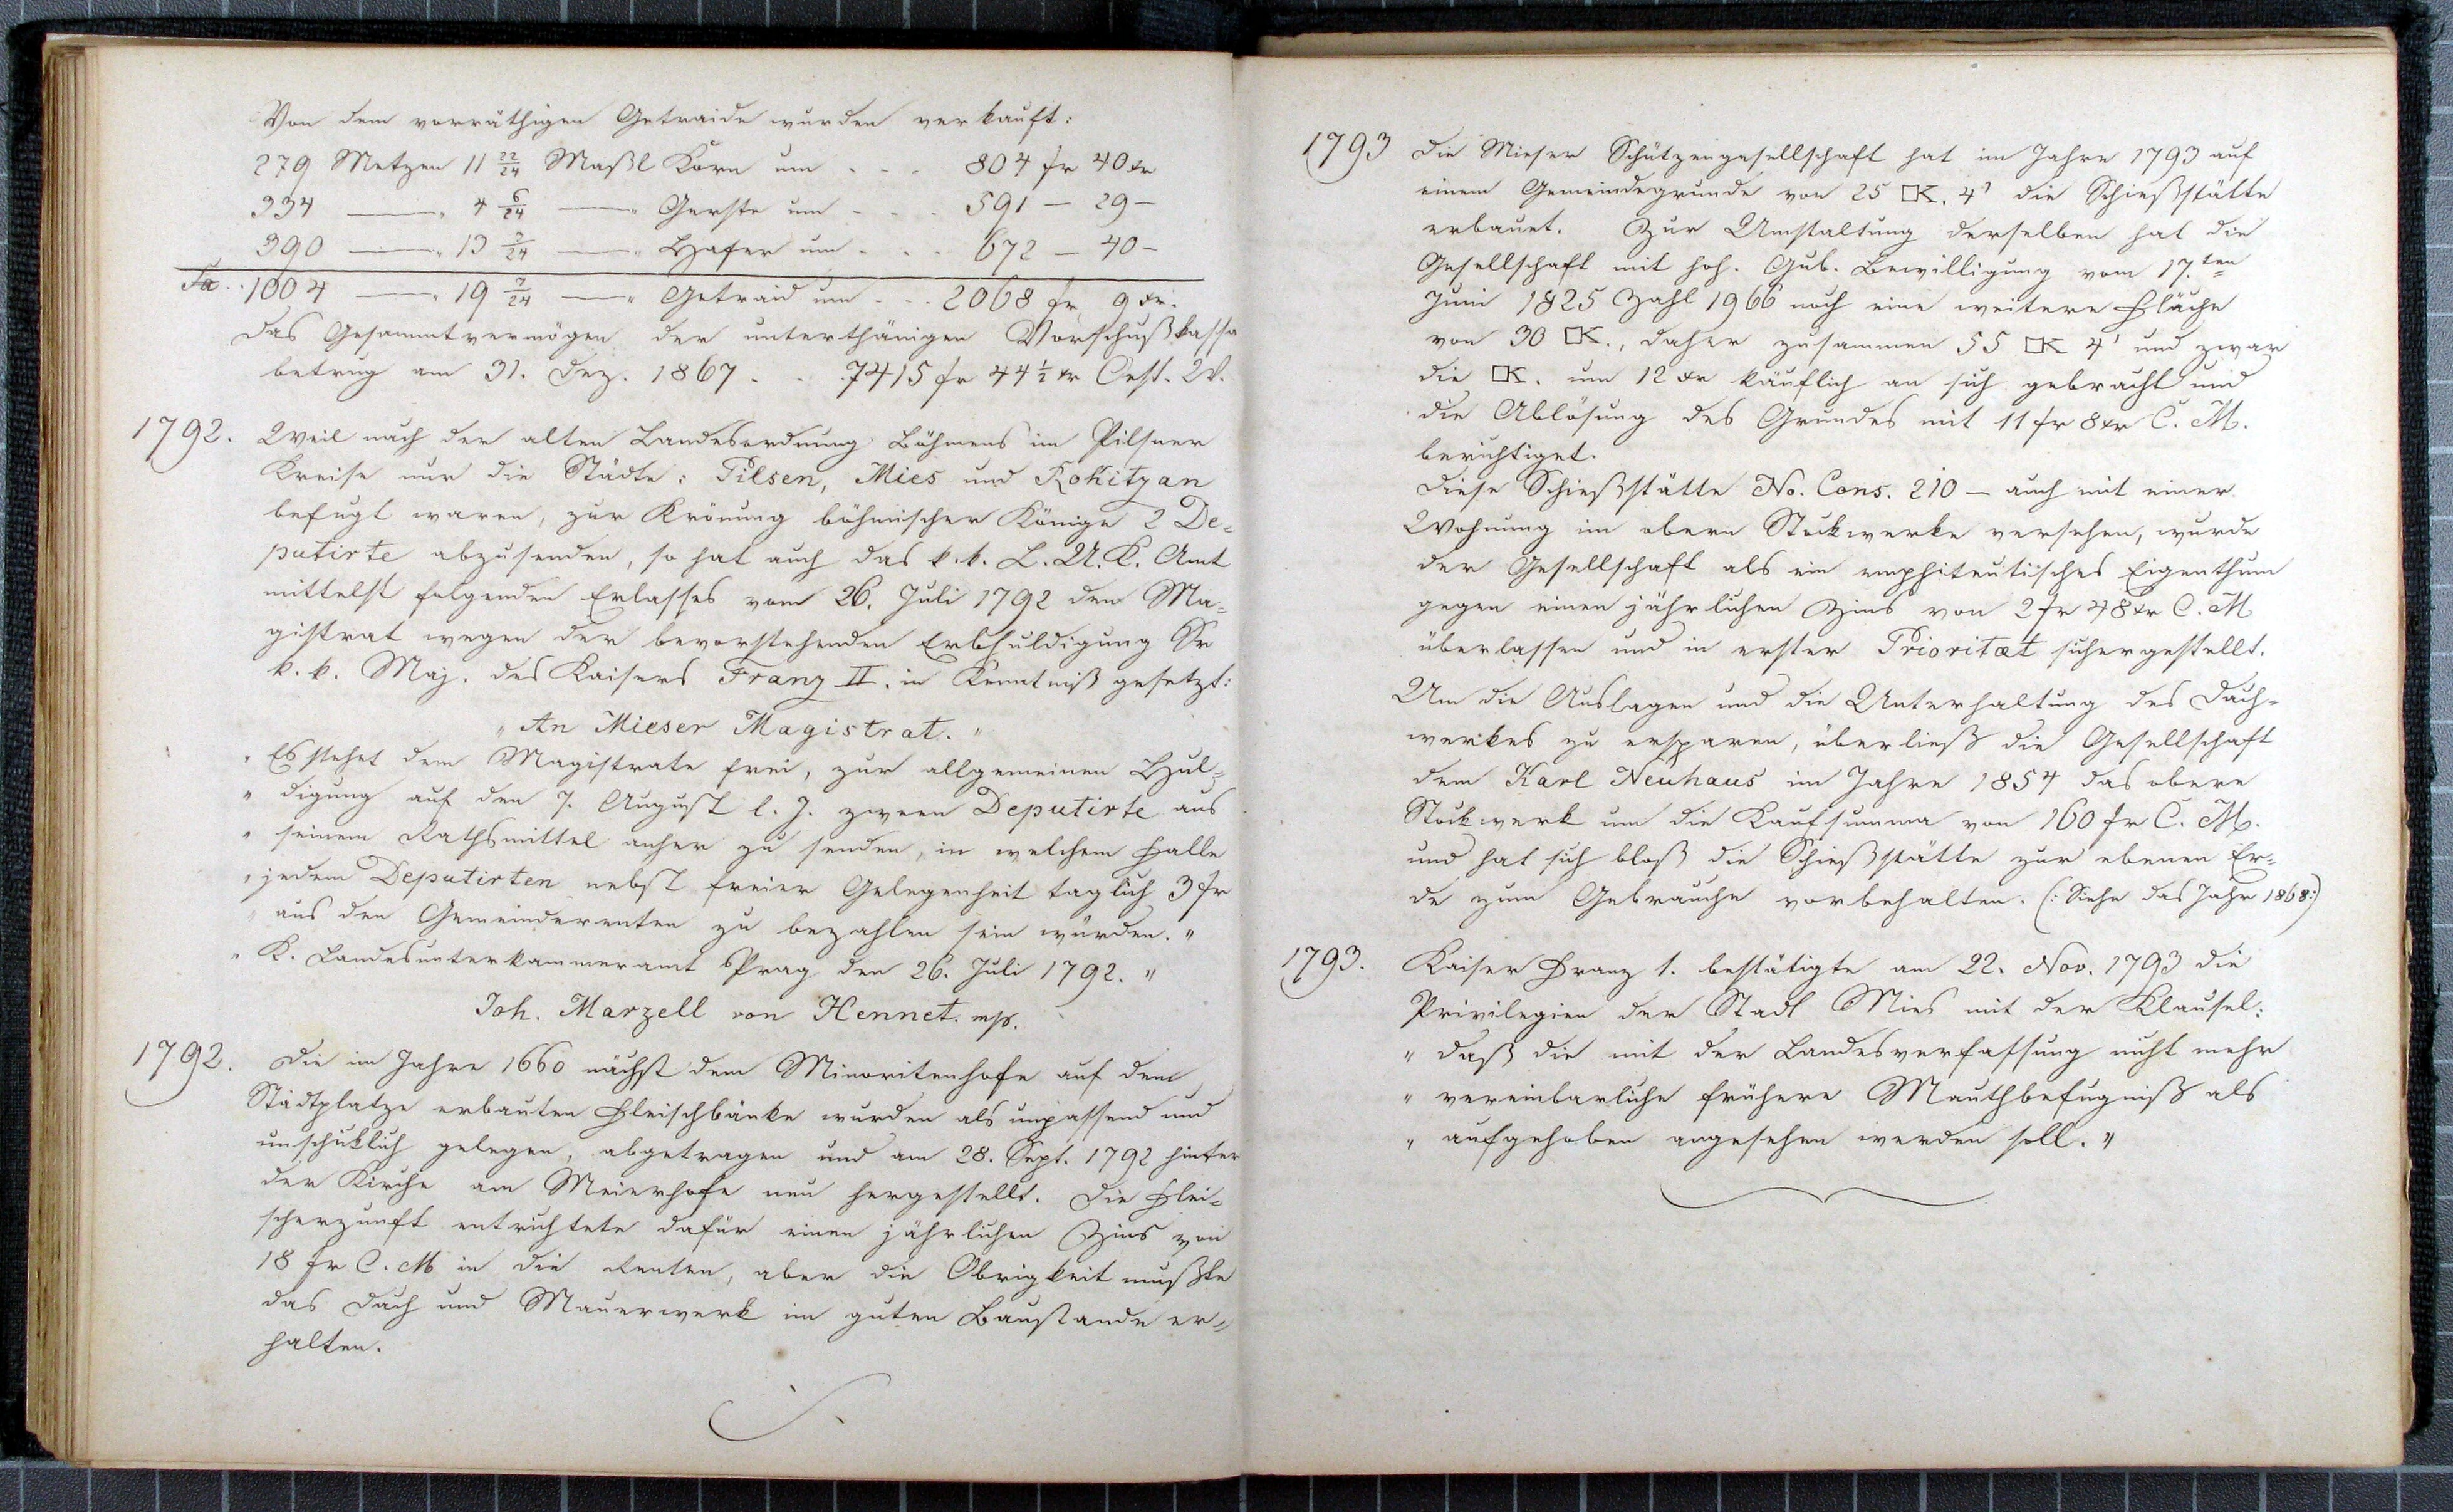 Von dem vorräthigen Getraide wurden verkauft:
279 Metzen 11 22/24 Maßl Korn um . . . 804 fr 40 xr
334 — " 4 6/24 — " Gerste um . . . 591 — 29 —
390 — " 13 3/24 — " Hafer um . . . 672 — 40 —
Sa. 1004 — " 19 7/24 — " Getraid um . . . 2068 fr 9 xr.
Das Gesammtvermögen der unterthänigen Vorschußkassa
betrug am 31. Dez. 1867 . . 7415 fr 44 1/2 xr Oest. W.
1792. Weil nach der alten Landesordnung Böhmens im Pilsner
Kreise nur die Städte: Pilsen, Mies und Rokitzan
befugt waren, zur Krönung böhmischer Könige 2 De=
putirte abzusenden, so hat auch das k. k. L. U. K. Amt
mittelst folgenden Erlasses vom 26. Juli 1792 den Ma=
gistrat wegen der bevorstehenden Erbhuldigung Sr
k. k. Maj. des Kaisers Franz II. in Kenntniß gesetzt:
" An Mieser Magistrat. "
" Es stehet dem Magistrate frei, zur allgemeinen Hul=
" digung auf den 7. August l. J. zween Deputirte aus
" seinem Rathsmittel anher zu senden, in welchem Falle
" jedem Deputirten nebst freier Gelegenheit taglich 3 fr
" aus den Gemeinderenten zu bezahlen sein würden. "
" K. Landesunterkammeramt Prag den 26. Juli 1792. "
Joh. Marzell von Hennet. mp.
1792. Die im Jahre 1660 nächst dem Minoritenhofe auf dem
Stadtplatze erbauten Fleischbänke wurden als unpassend und
unschicklich gelegen, abgetragen und am 28. Sept. 1792 hinter
der Kirche am Meierhofe neu hergestellt. Die Flei=
scherzunft entrichtete dafür einen jährlichen Zins von
18 fr C. M in die Renten, aber die Obrigkeit mußte
das Dach und Mauerwerk im guten Baustande er=
halten.
1793 Die Mieser Schützengesellschaft hat im Jahre 1793 auf
einem Gemeindegrunde von 25 □K. 4' die Schießstätte
erbauet. Zur Umstaltung derselben hat die
Gesellschaft mit hoh. Gub. Bewilligung vom 17.ten
Juni 1825 Zahl 1966 noch eine weitere Fläche
von 30 □K., daher zusammen 55 □K 4' und zwar
die □K. um 12 xr käuflich an sich gebracht und
die Ablösung des Grundes mit 11 fr 8 xr C. M.
berichtiget.
Diese Schießstätte No. Cons. 210 — auch mit einer
Wohnung im obern Stockwerke versehen, wurde
der Gesellschaft als ein emphiteutisches Eigenthum
gegen einen jährlichen Zins von 2 fr 48 xr C. M
überlassen und in erster Prioritæt sichergestellt.
Um die Auslagen und die Unterhaltung des Dach=
werkes zu ersparen, überließ die Gesellschaft
dem Karl Neuhaus im Jahre 1854 das obere
Stockwerk um die Kaufsumma von 160 fr C. M.
und hat sich bloß die Schießstätte zur ebenen Er=
de zum Gebrauche vorbehalten. (: Siehe das Jahr 1868:)
1793. Kaiser Franz 1. bestätigte am 22. Nov. 1793 die
Privilegien der Stadt Mies mit der Klausel:
" daß die mit der Landesverfassung nicht mehr
" vereinbarliche frühere Mauthbefugniß als
" aufgehoben angesehen werden soll. "